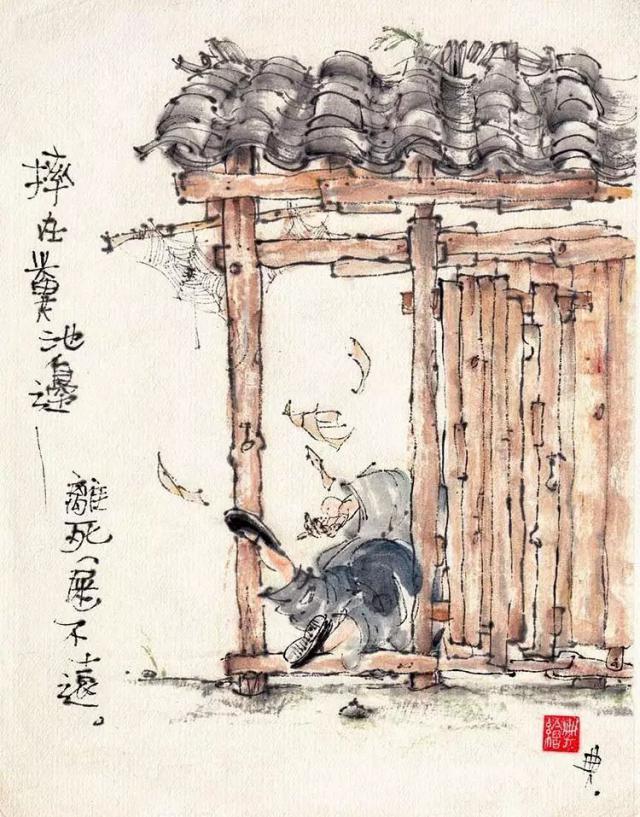 摔在糞池邊——
離死（屎）不遠。
典.